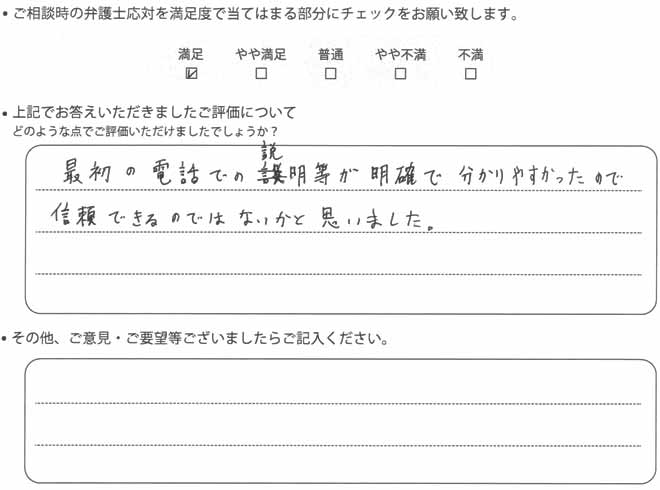 • ご相談時の弁護士応対を満足度で当てはまる部分にチェックをお願い致します。
満足 やや満足 普通 やや不満 不満
☑ ☐ ☐ ☐ ☐
• 上記でお答えいただきましたご評価について
どのような点でご評価いただけましたでしょうか？
最初の電話での説明等が明確で分かりやすかったので
信頼できるのではないかと思いました。
• その他、ご意見・ご要望等ございましたらご記入ください。